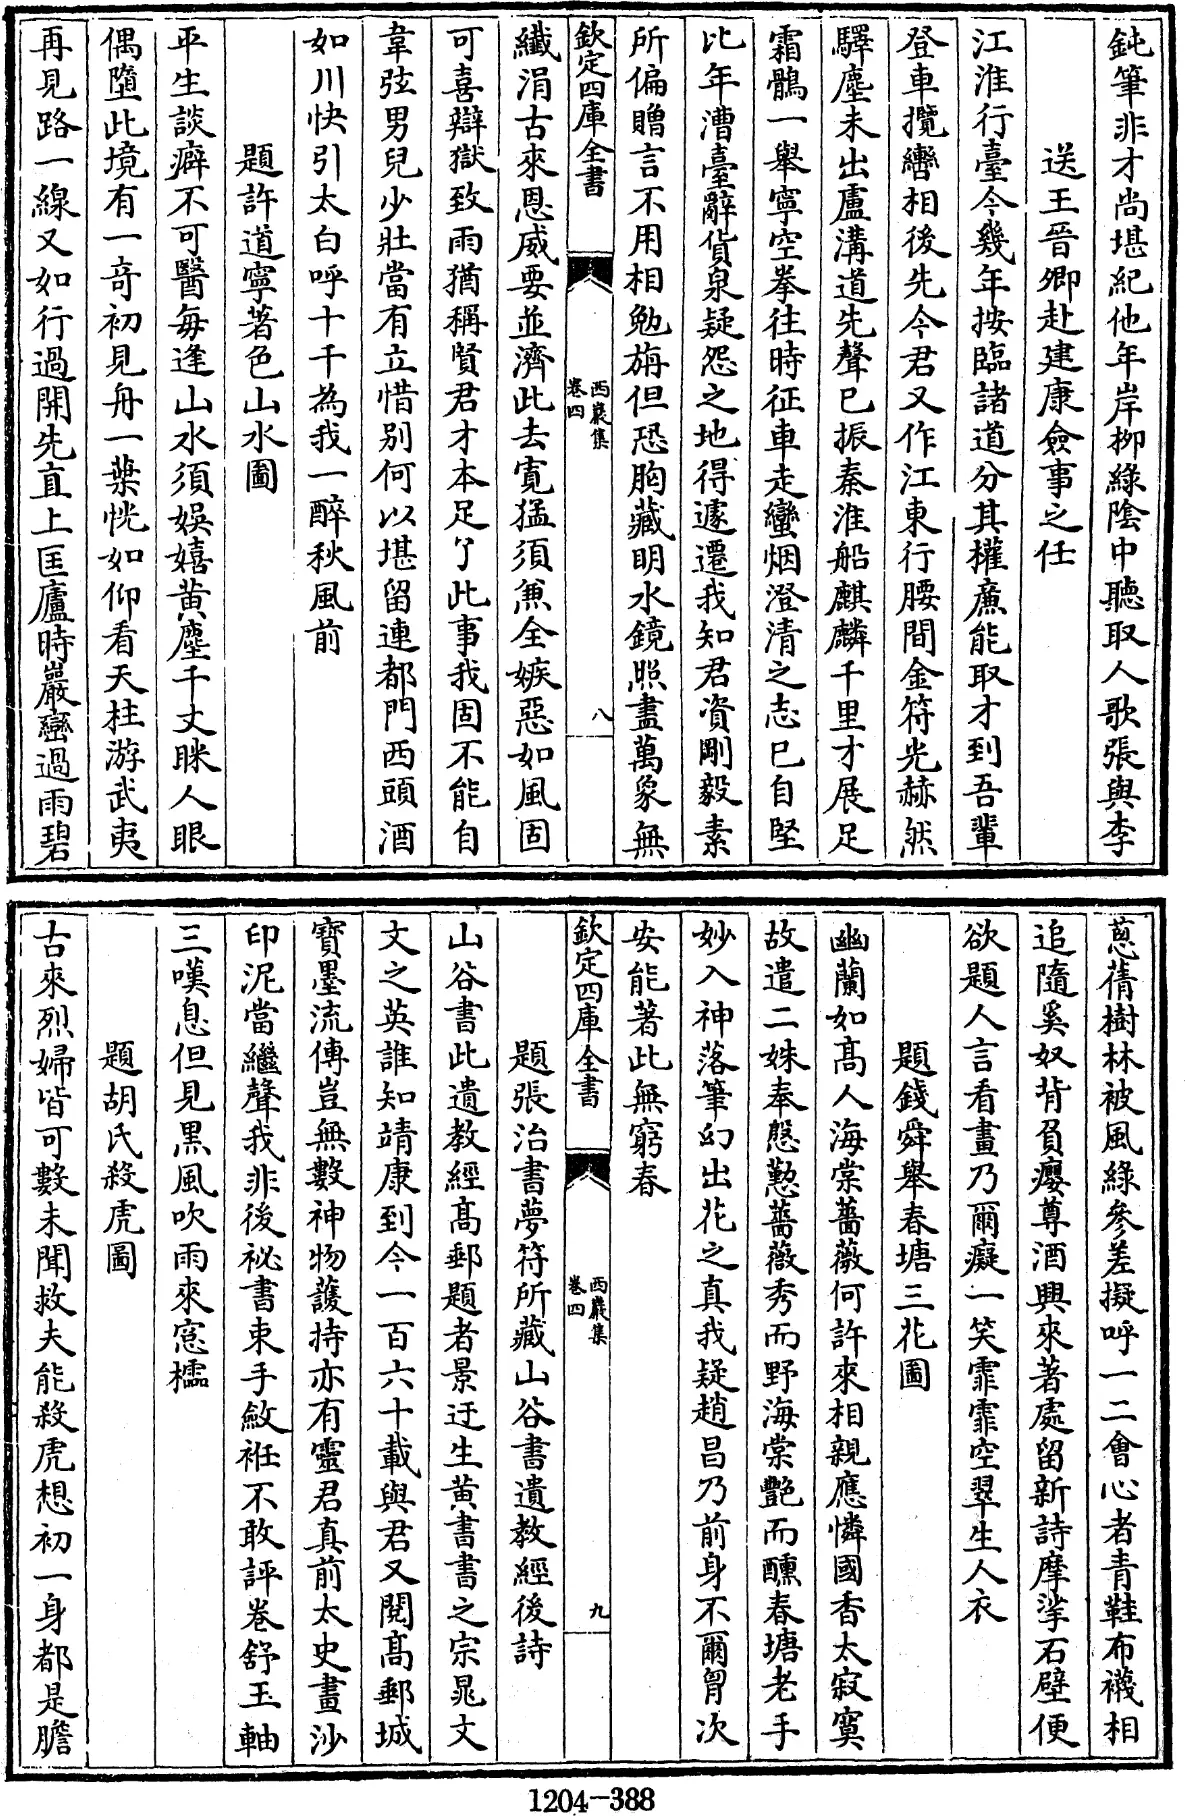 鈍筆非才尚堪紀他年岸栁緑陰中聽取人歌張與李
送王晉卿赴建康僉事之任
江淮行臺今幾年按臨諸道分其權亷能取才到吾輩
登車攬轡相後先今君又作江東行腰間金符光赫然
驛塵未出盧溝道先聲已振秦淮船麒麟千里才展足
霜鶻一舉寧空拳往時征車走蠻烟澄清之志已自堅
比年漕臺辭貨泉疑怨之地得遽遷我知君資剛毅素
所偏贈言不用相勉旃但恐胸藏明水鏡照盡萬象無
欽定四庫全書
西巖集
卷四
八
纎涓古來恩威要並濟此去寛猛須兼全嫉惡如風固
可喜辯獄致雨猶稱賢君才本足了此事我固不能自
韋弦男兒少壯當有立惜别何以堪留連都門西頭酒
如川快引太白呼十千為我一醉秋風前
題許道寧著色山水圖
平生談癖不可醫毎逢山水須娱嬉黄塵千丈眯人眼
偶墮此境有一奇初見舟一葉恍如仰看天柱游武夷
再見路一線又如行過開先直上匡廬時巖巒過雨碧
蔥蒨樹林被風緑參差擬呼一二會心者青鞋布襪相
追隨奚奴背負癭尊酒興來著處留新詩摩挲石壁便
欲題人言看畫乃爾癡一笑霏霏空翠生人衣
題錢舜舉春塘三花圖
幽蘭如髙人海棠薔薇何許來相親應憐國香太寂寞
故遣二姝奉慇懃薔薇秀而野海棠艷而醺春塘老手
妙入神落筆幻出花之真我疑趙昌乃前身不爾胷次
安能著此無窮春
欽定四庫全書
西巖集
卷四
九
題張治書夢符所藏山谷書遺教經後詩
山谷書此遺教經髙郵題者景迂生黄書書之宗晁文
文之英誰知靖康到今一百六十載與君又閱髙郵城
寳墨流傳豈無數神物䕶持亦有靈君真前太史畫沙
印泥當繼聲我非後祕書束手斂衽不敢評卷舒玉軸
三嘆息但見黒風吹雨來窓櫺
題胡氏殺虎圖
古來烈婦皆可數未聞救夫能殺虎想初一身都是膽
1204-388